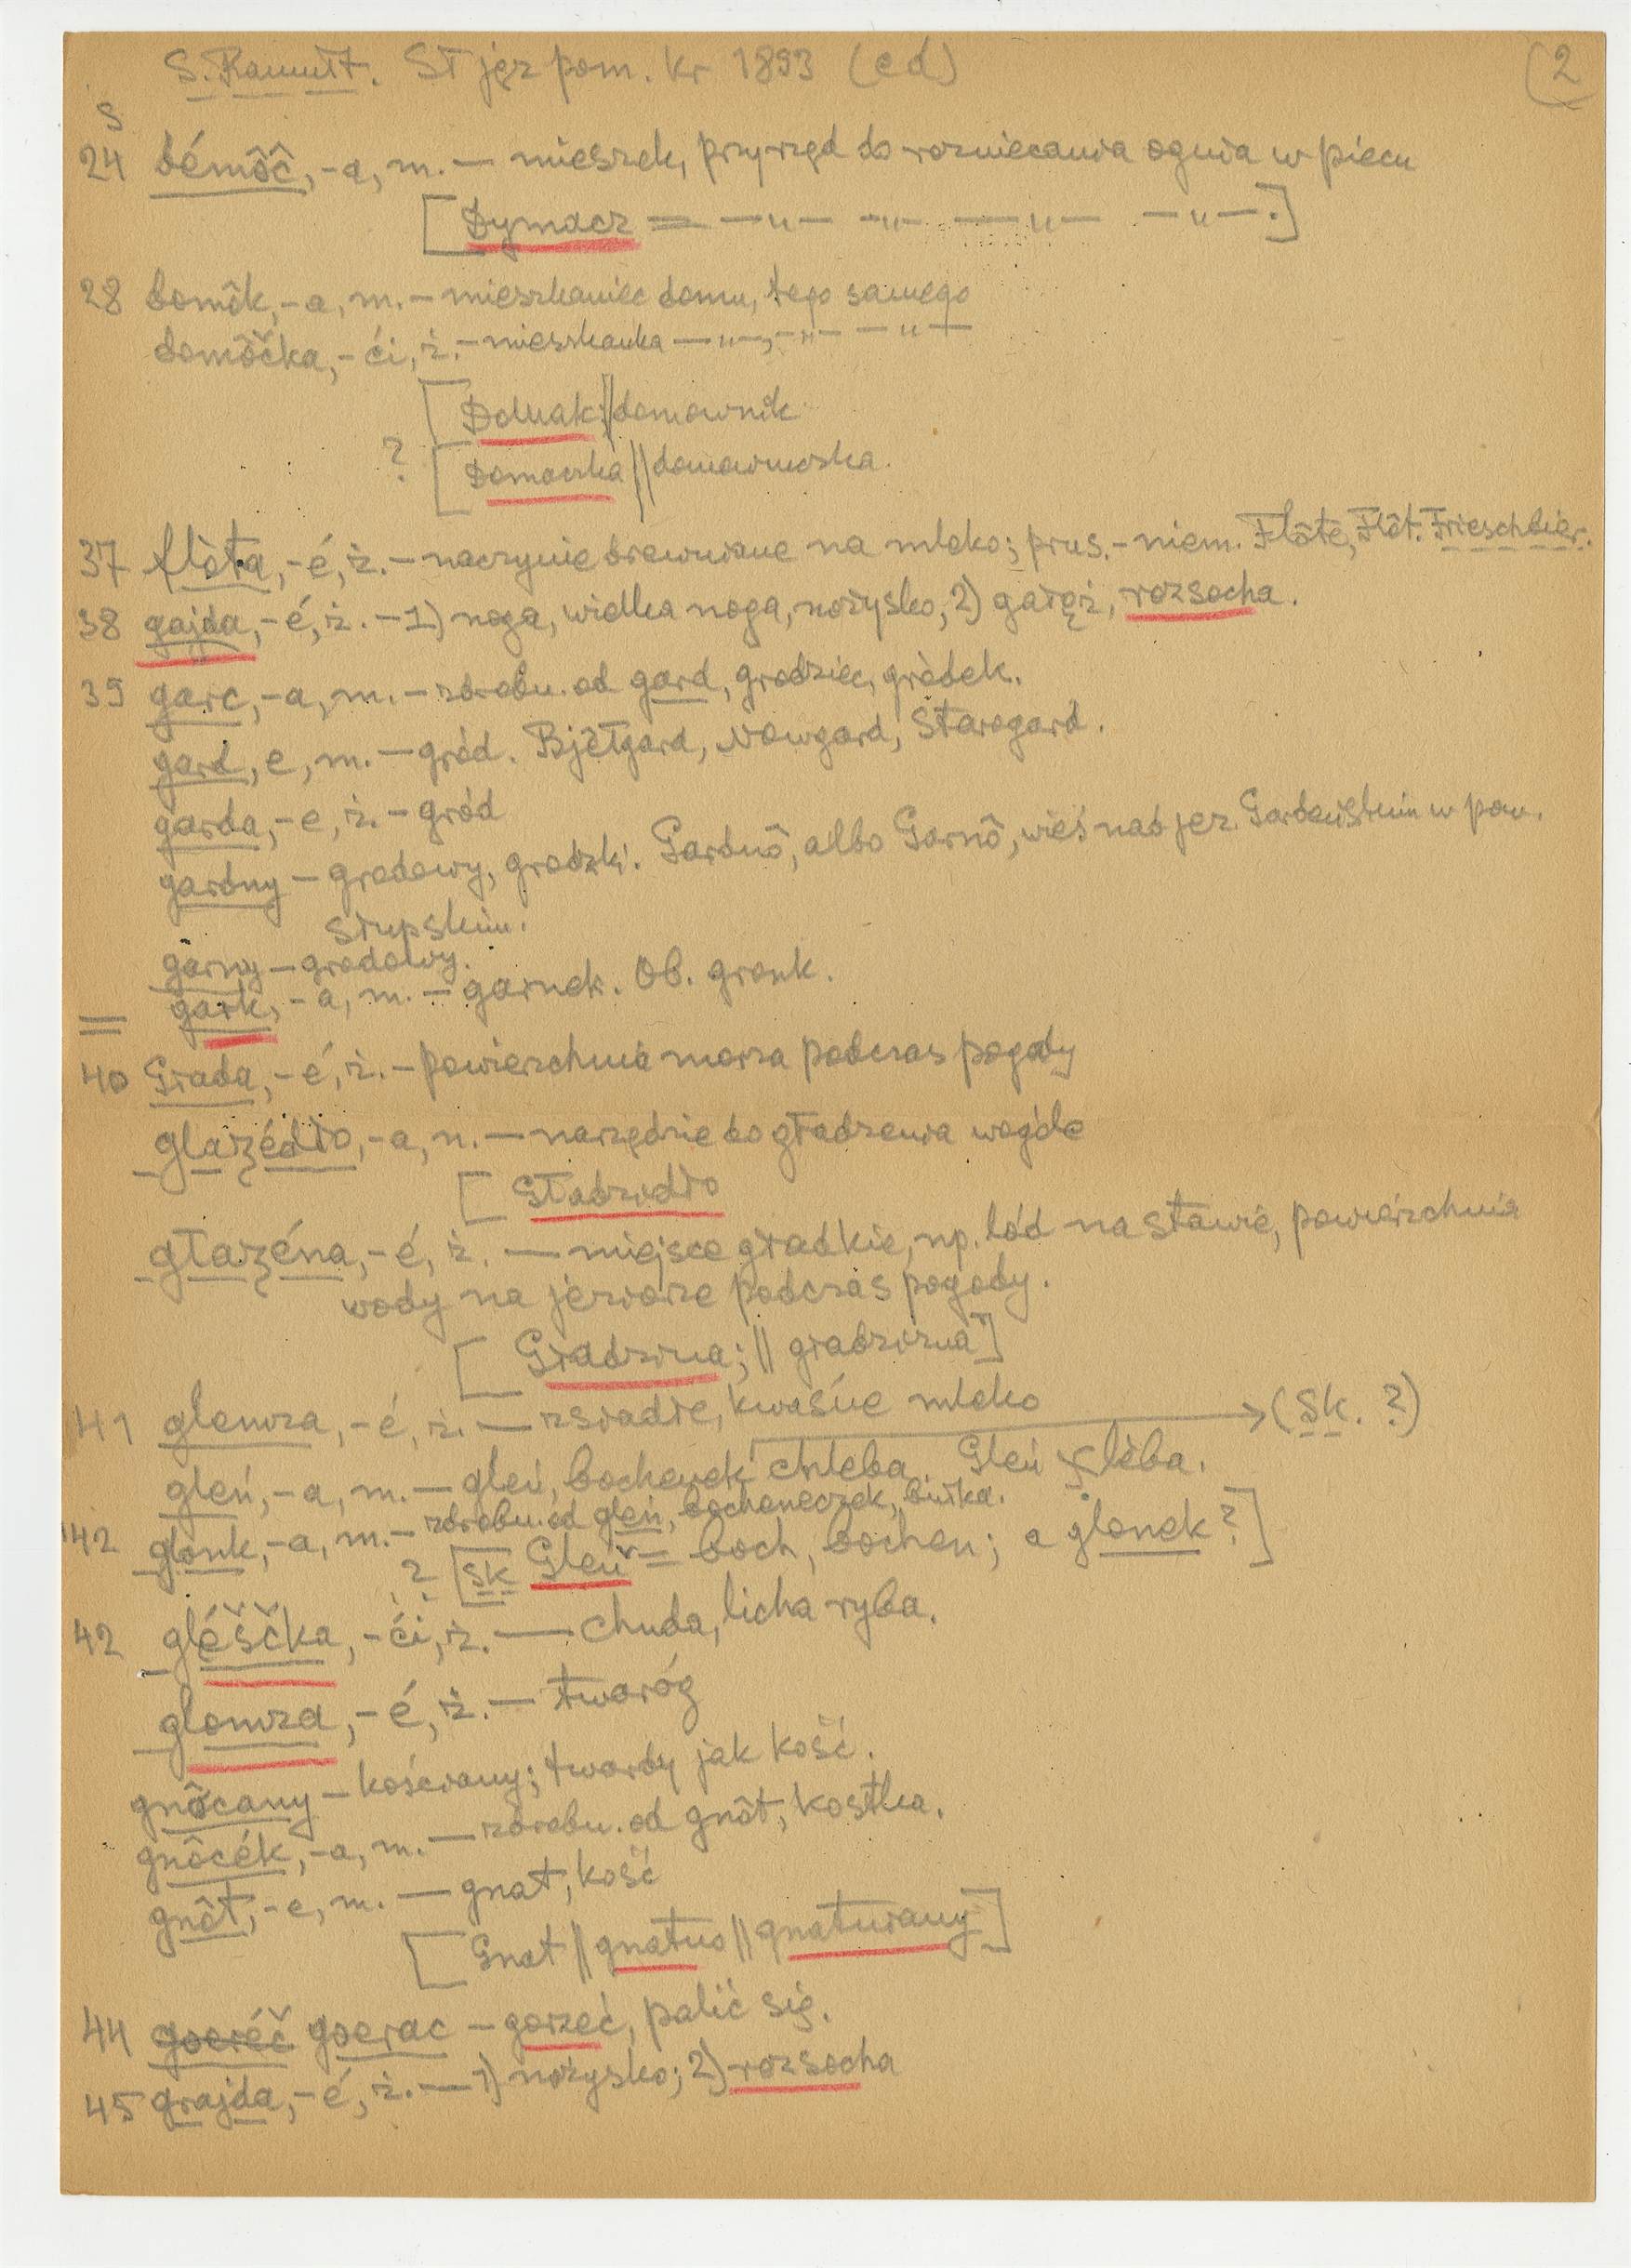 S. Ramułt. Sł jęz pom. kr 1893 (cd) (2
S
24 démôč, -a, m. — mieszek, przyrząd do rozniecania ognia w piecu
[Dymacz = —"— —"— —"— —"—.]
28 domôk, -a, m. — mieszkaniec domu, tego samego
domôčka, -ći, ż. — mieszkanka —"—, —"— —"—
[Domak || domownik
? [Domaczka || domowniczka.
37 flòta, -é, ż. — naczynie drewniane na mleko; prus.-niem. Flôte, Flôt. Frieschbier.
38 gajda, -é, ż. — 1) noga, wielka noga, nożysko, 2) gałęź, rozsocha.
39 garc, -a, m. — zdrobn. od gard, grodziec, gródek.
gard, e, m. — gród. Bjèłgard, Nowgard, Starogard.
garda, -e, ż. — gród
gardny — grodowy, grodzki. Gardnô, albo Garnô, wieś nad jez. Gardeńskim w pow.
słupskim.
garny — grodowy.
= gark, -a, m. — garnek. Ob. gronk.
40 Glada, -é, ż. — powierzchnia morza podczas pogody
glazédło, -a, n. — narzędzie do gładzenia wogóle
[Gładzidło
głazéna, -é, ż. — miejsce gładkie, np. lód na stawie, powierzchnia
wody na jeziorze podczas pogody.
[Gładzizna; || gładzizna]
41 glemza, -é, ż. — zsiadłe, kwaśne mleko → (Sk. ?)
gleń, -a, m. — gleń, bochenek chleba. Gleń χlèba.
42 glonk, -a, m. — zdrobn. od gleń, bocheneczek, bułka.
? [Sk Gleń = boch, bochen; a glonek?]
42 gléščka, -ći, ż. — chuda, licha ryba.
glomza, -é, ż. — twaróg
gnôcany — kościany; twardy jak kość.
gnôcék, -a, m. — zdrobn. od gnôt, kostka.
gnôt, -e, m. — gnat, kość
[Gnat || gnatuo || gnatwiany]
44 goeréč goerac — gorzeć, palić się.
45 grajda, -é, ż. — 1) nożysko; 2) rozsocha